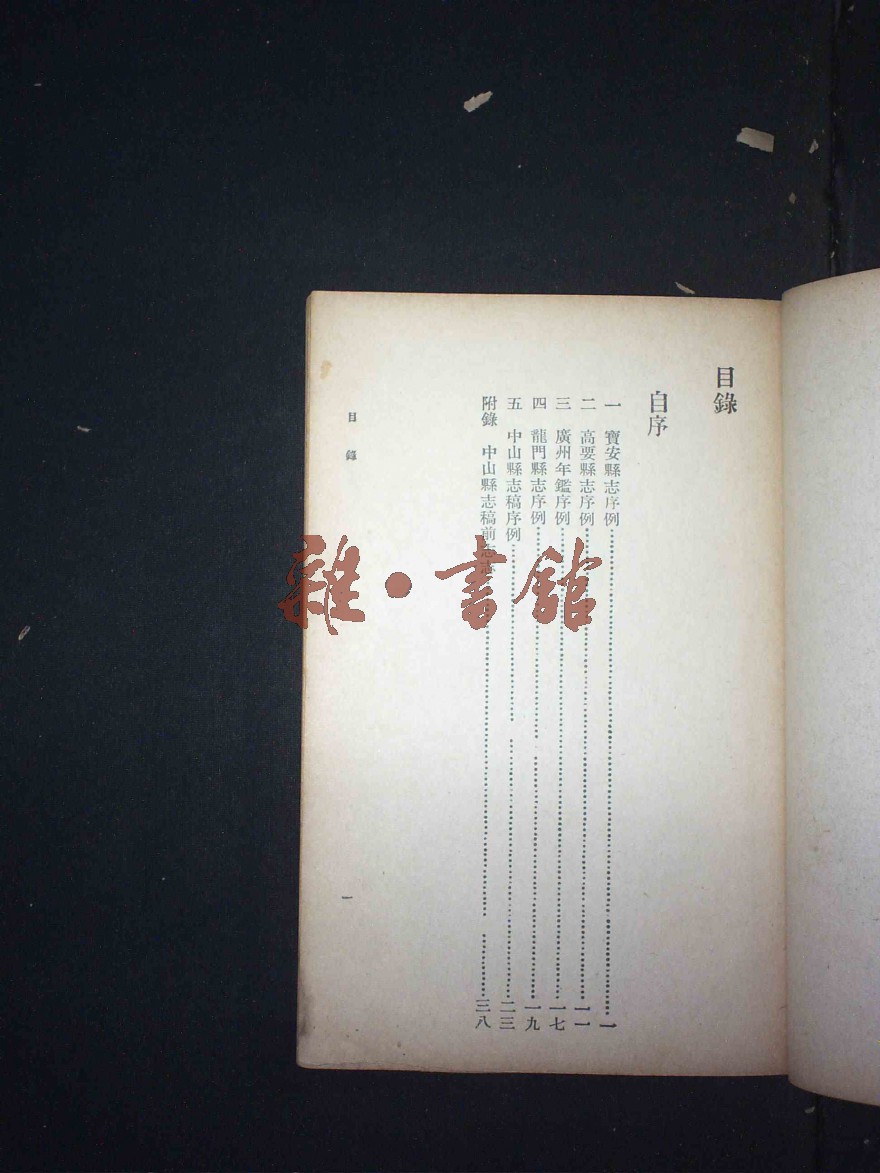 目錄
自序
一 寶安縣志序例……一
二 高要縣志序例……一一
三 廣州年鑑序例……一七
四 龍門縣志序例……一九
五 中山縣志稿序例……二三
附錄 中山縣志稿前志……三八
目錄
一
雜·書館